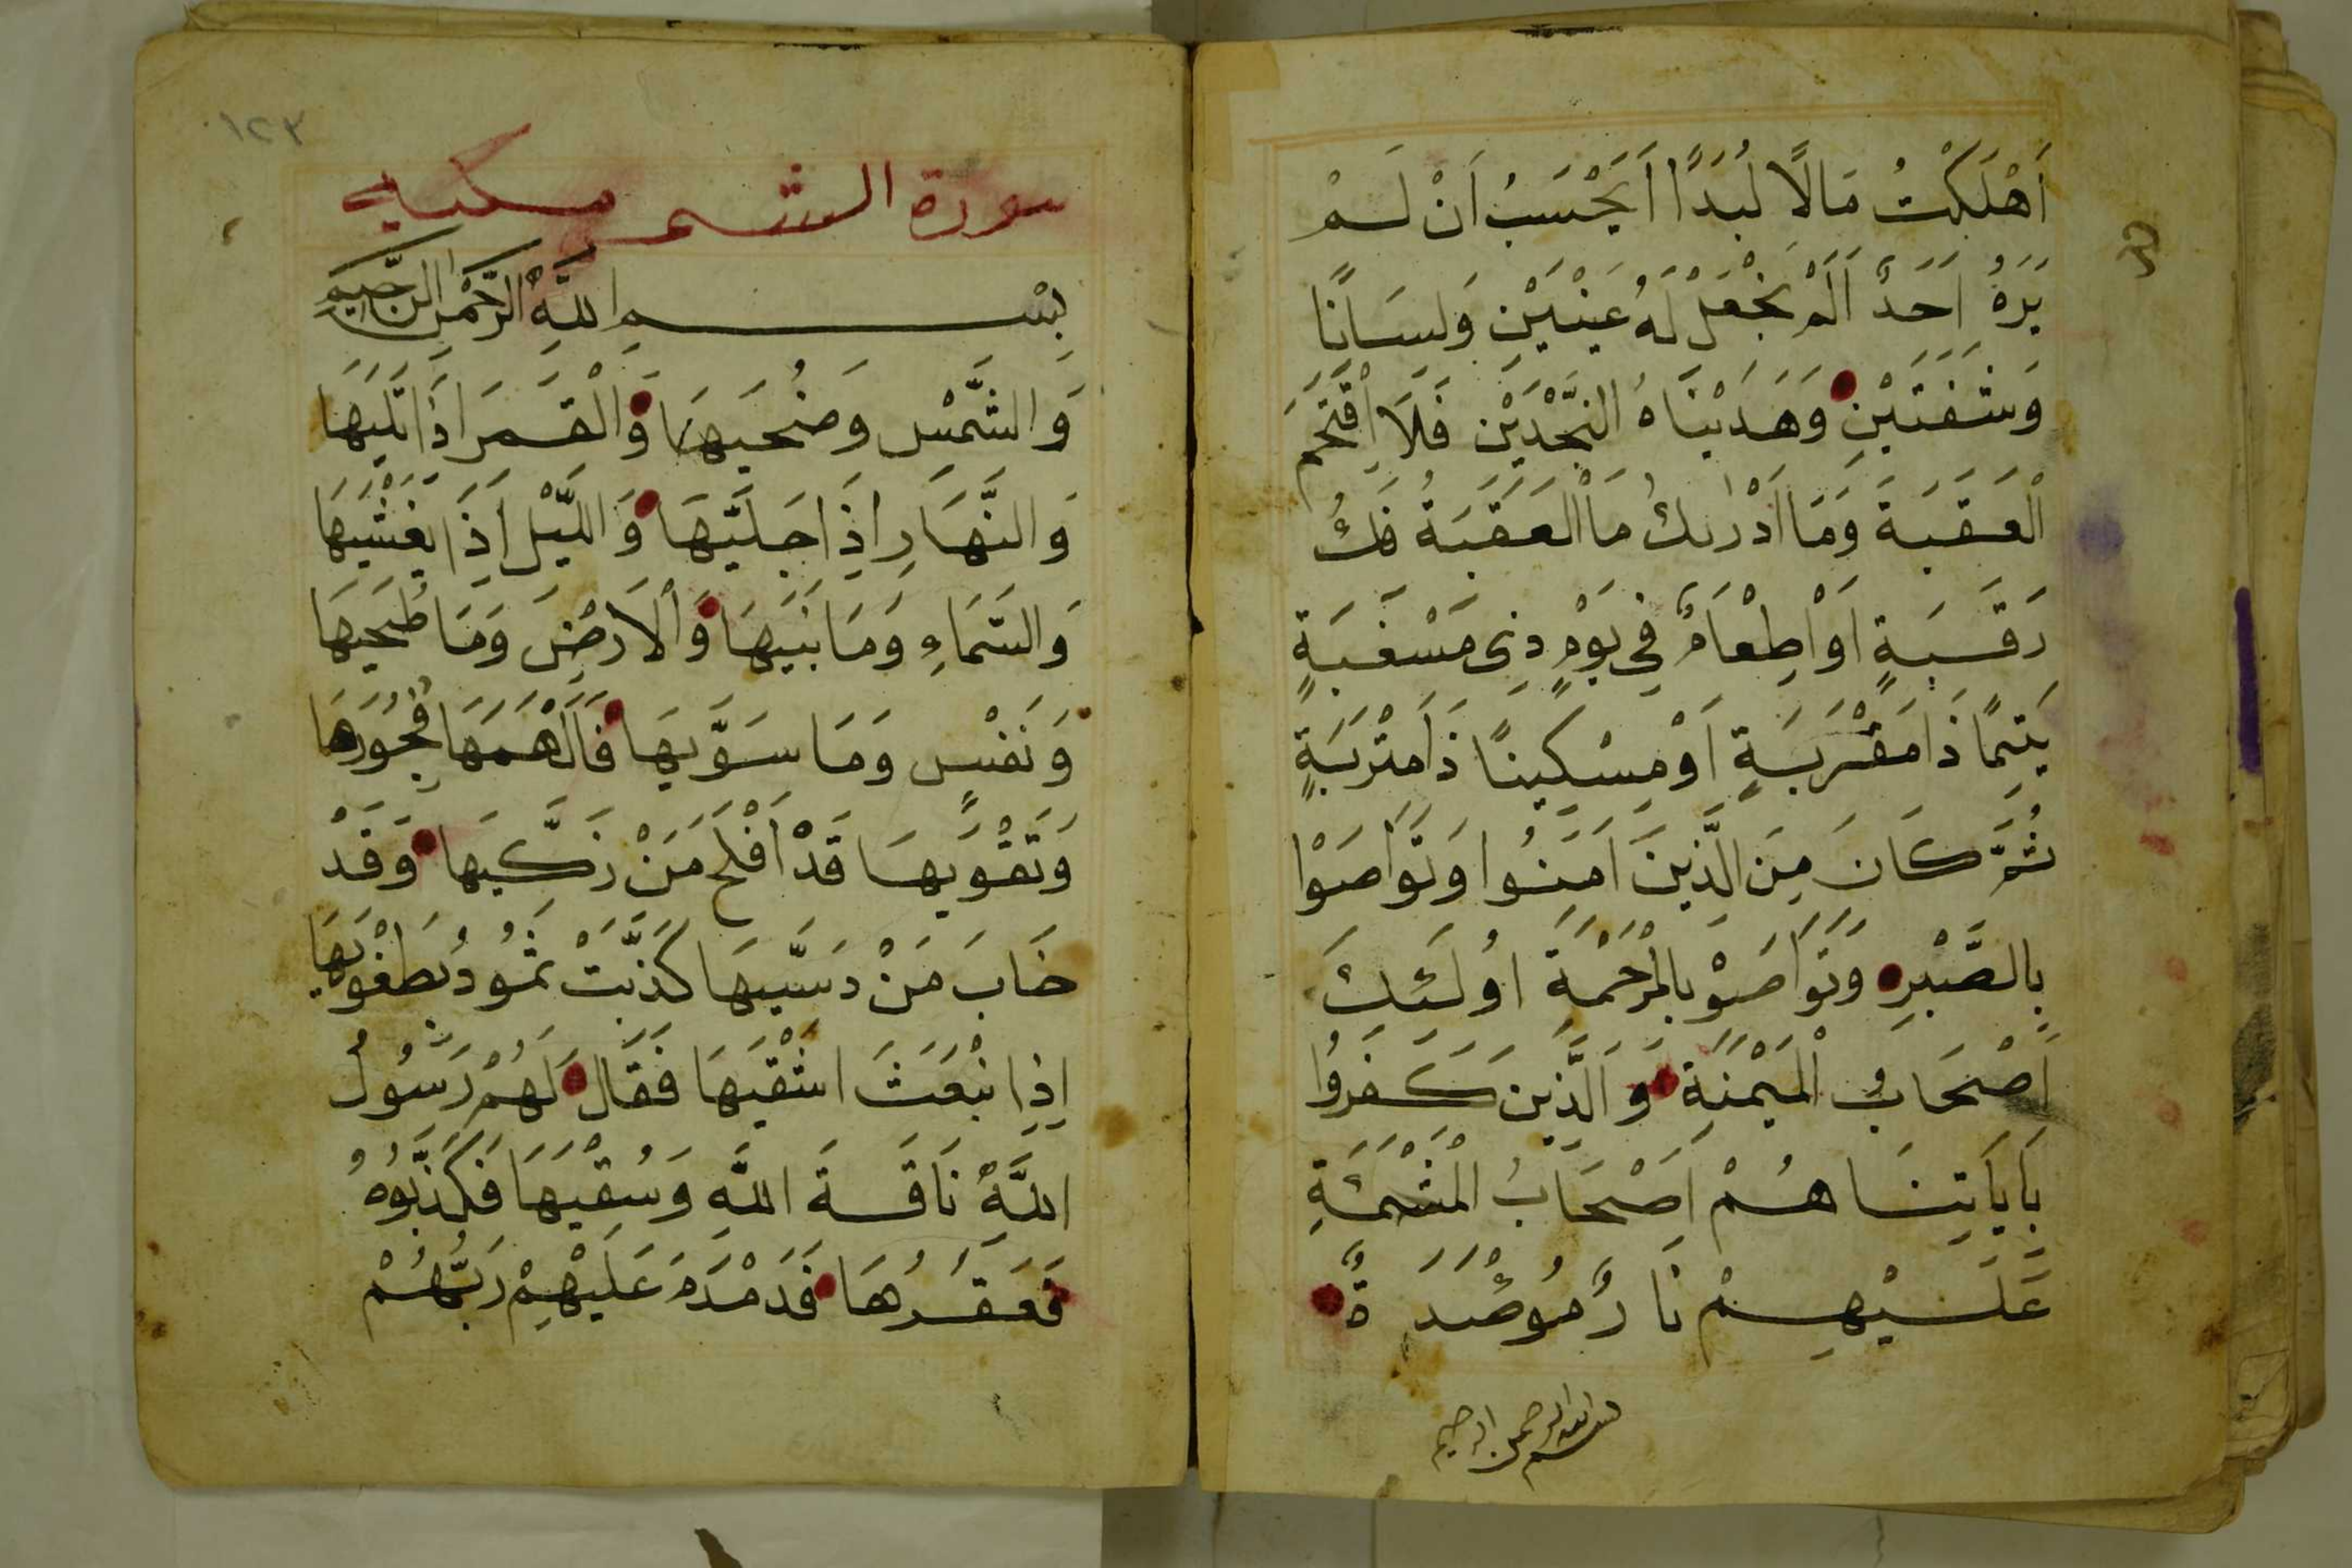 اَهْلَكْتُ مَالًا لُبَدًا اَيَحْسَبُ اَنْ لَمْ
يَرَهُ اَحَدٌ اَلَمْ نَجْعَلْ لَهُ عَيْنَيْنِ وَلِسَانًا
وَشَفَتَيْنِ وَهَدَيْنَاهُ النَّجْدَيْنِ فَلَا اقْتَحَمَ
الْعَقَبَةَ وَمَا اَدْرٰىكَ مَا الْعَقَبَةُ فَكُّ
رَقَبَةٍ اَوْ اِطْعَامٌ فِي يَوْمٍ ذِي مَسْغَبَةٍ
يَتِيمًا ذَا مَقْرَبَةٍ اَوْ مِسْكِينًا ذَا مَتْرَبَةٍ
ثُمَّ كَانَ مِنَ الَّذِينَ اٰمَنُوا وَتَوَاصَوْا
بِالصَّبْرِ وَتَوَاصَوْ بِالْمَرْحَمَةِ اُولَئِكَ
اَصْحَابُ الْمَيْمَنَةِ وَالَّذِينَ كَفَرُوا
بِاَيَاتِنَا هُمْ اَصْحَابُ الْمَشْئَمَةِ
عَلَيْهِمْ نَارٌ مُؤْصَدَةٌ
بسم الله الرحمن الرحيم
١٢٣
سورة الشمس مكية
بِسْمِ اللهِ الرَّحْمٰنِ الرَّحِيمِ
وَالشَّمْسِ وَضُحَيهَا وَالْقَمَرَ اِذَا تَلَيهَا
وَالنَّهَارِ اِذَا جَلَّيهَا وَاللَّيْلِ اِذَا يَغْشَيهَا
وَالسَّمَاءِ وَمَا بَنَيهَا وَالْاَرْضِ وَمَا طَحَيهَا
وَنَفْسٍ وَمَا سَوَّيهَا فَاَلْهَمَهَا فُجُورَهَا
وَتَقْوَيهَا قَدْ اَفْلَحَ مَنْ زَكَّيهَا وَقَدْ
خَابَ مَنْ دَسَّيهَا كَذَّبَتْ ثَمُودُ بِطَغْوَيهَا
اِذِ انْبَعَثَ اشْقَيهَا فَقَالَ لَهُمْ رَسُولُ
اللَّهِ نَاقَةَ اللَّهِ وَسُقْيَهَا فَكَذَّبُوهُ
فَعَقَرُهَا فَدَمْدَمَ عَلَيْهِمْ رَبُّهُمْ